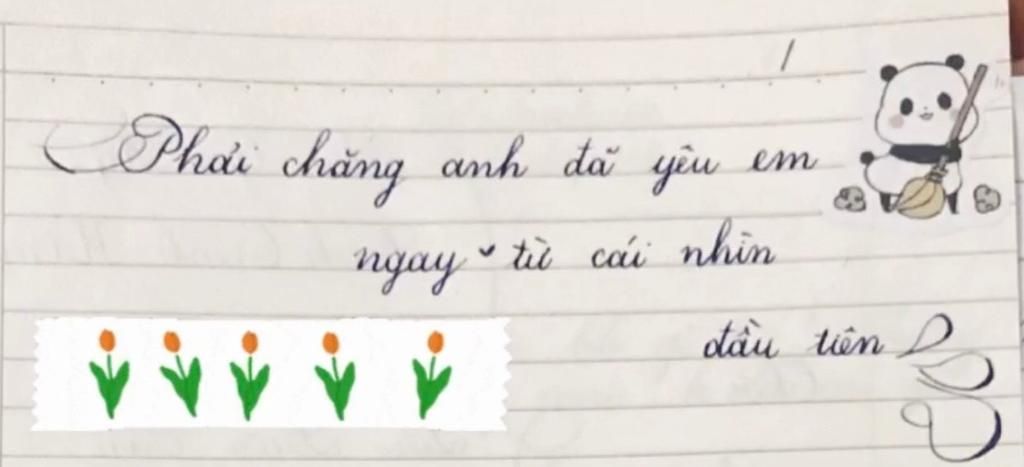 Phải chăng anh đã yêu em
ngay từ cái nhìn
đầu tiên